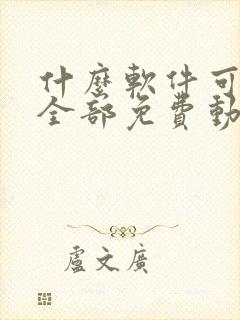 什麼軟件可
全部免費動
盧文廣